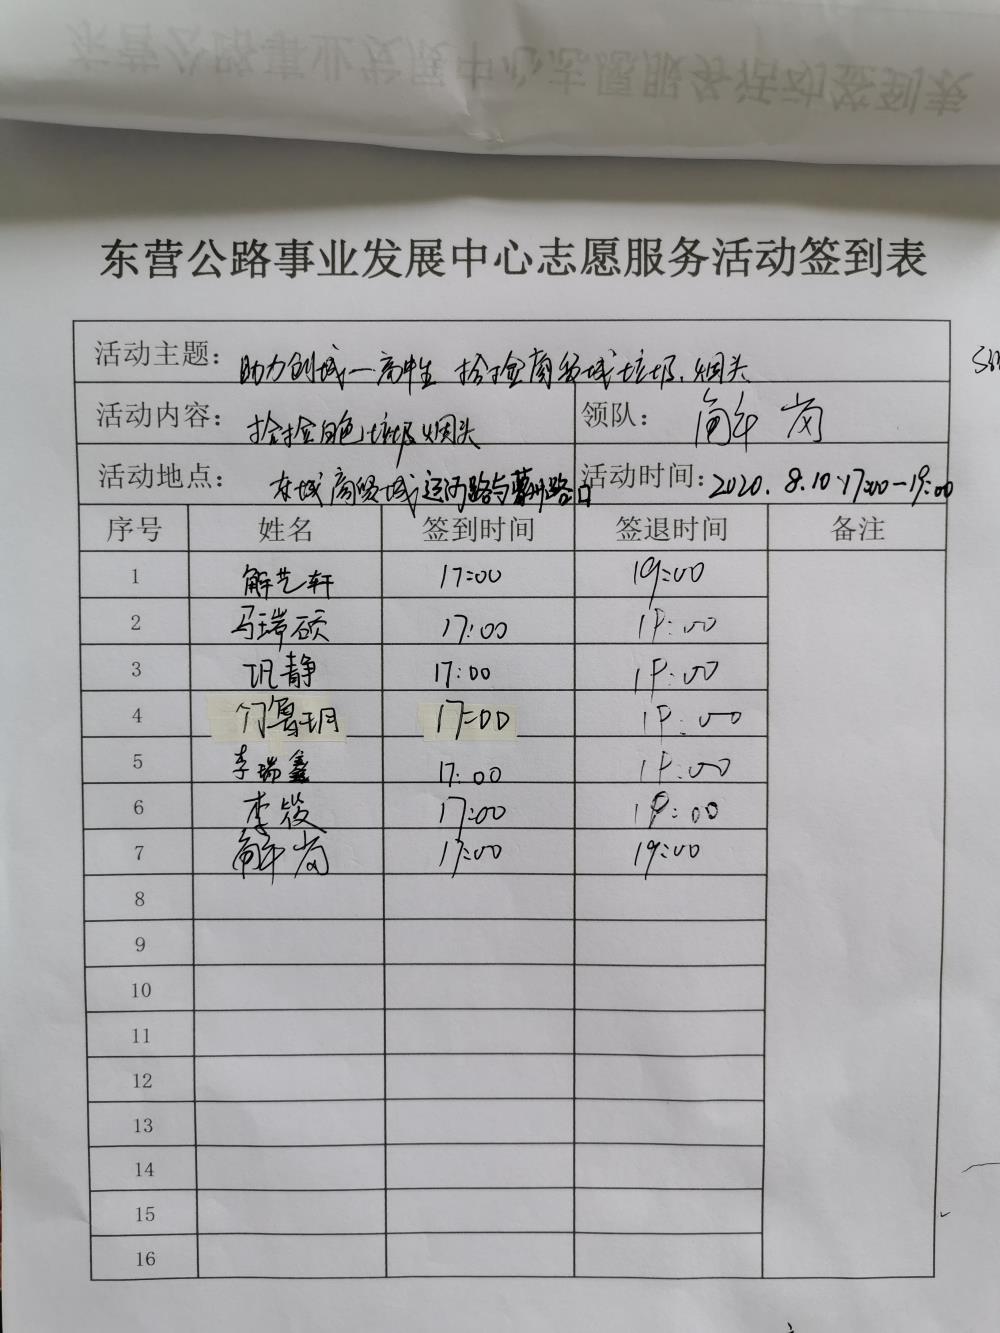 东营公路事业发展中心志愿服务活动签到表
活动主题： 助力创城一高中生 捡拾商贸城垃圾、烟头
活动内容： 捡拾白色垃圾烟头 领队： 解岗
活动地点： 东城商贸城运河路与路口 活动时间： 2020.8.10.17:00-19:00
序号 姓名 签到时间 签退时间 备注
1 解艺轩 17:00 19:00
2 马瑞硕 17:00 19:00
3 巩静 17:00 19:00
4 17:00 19:00
5 李瑞鑫 17:00 19:00
6 李筱 17:00 19:00
7 解岗 17:00 19:00
8
9
10
11
12
13
14
15
16